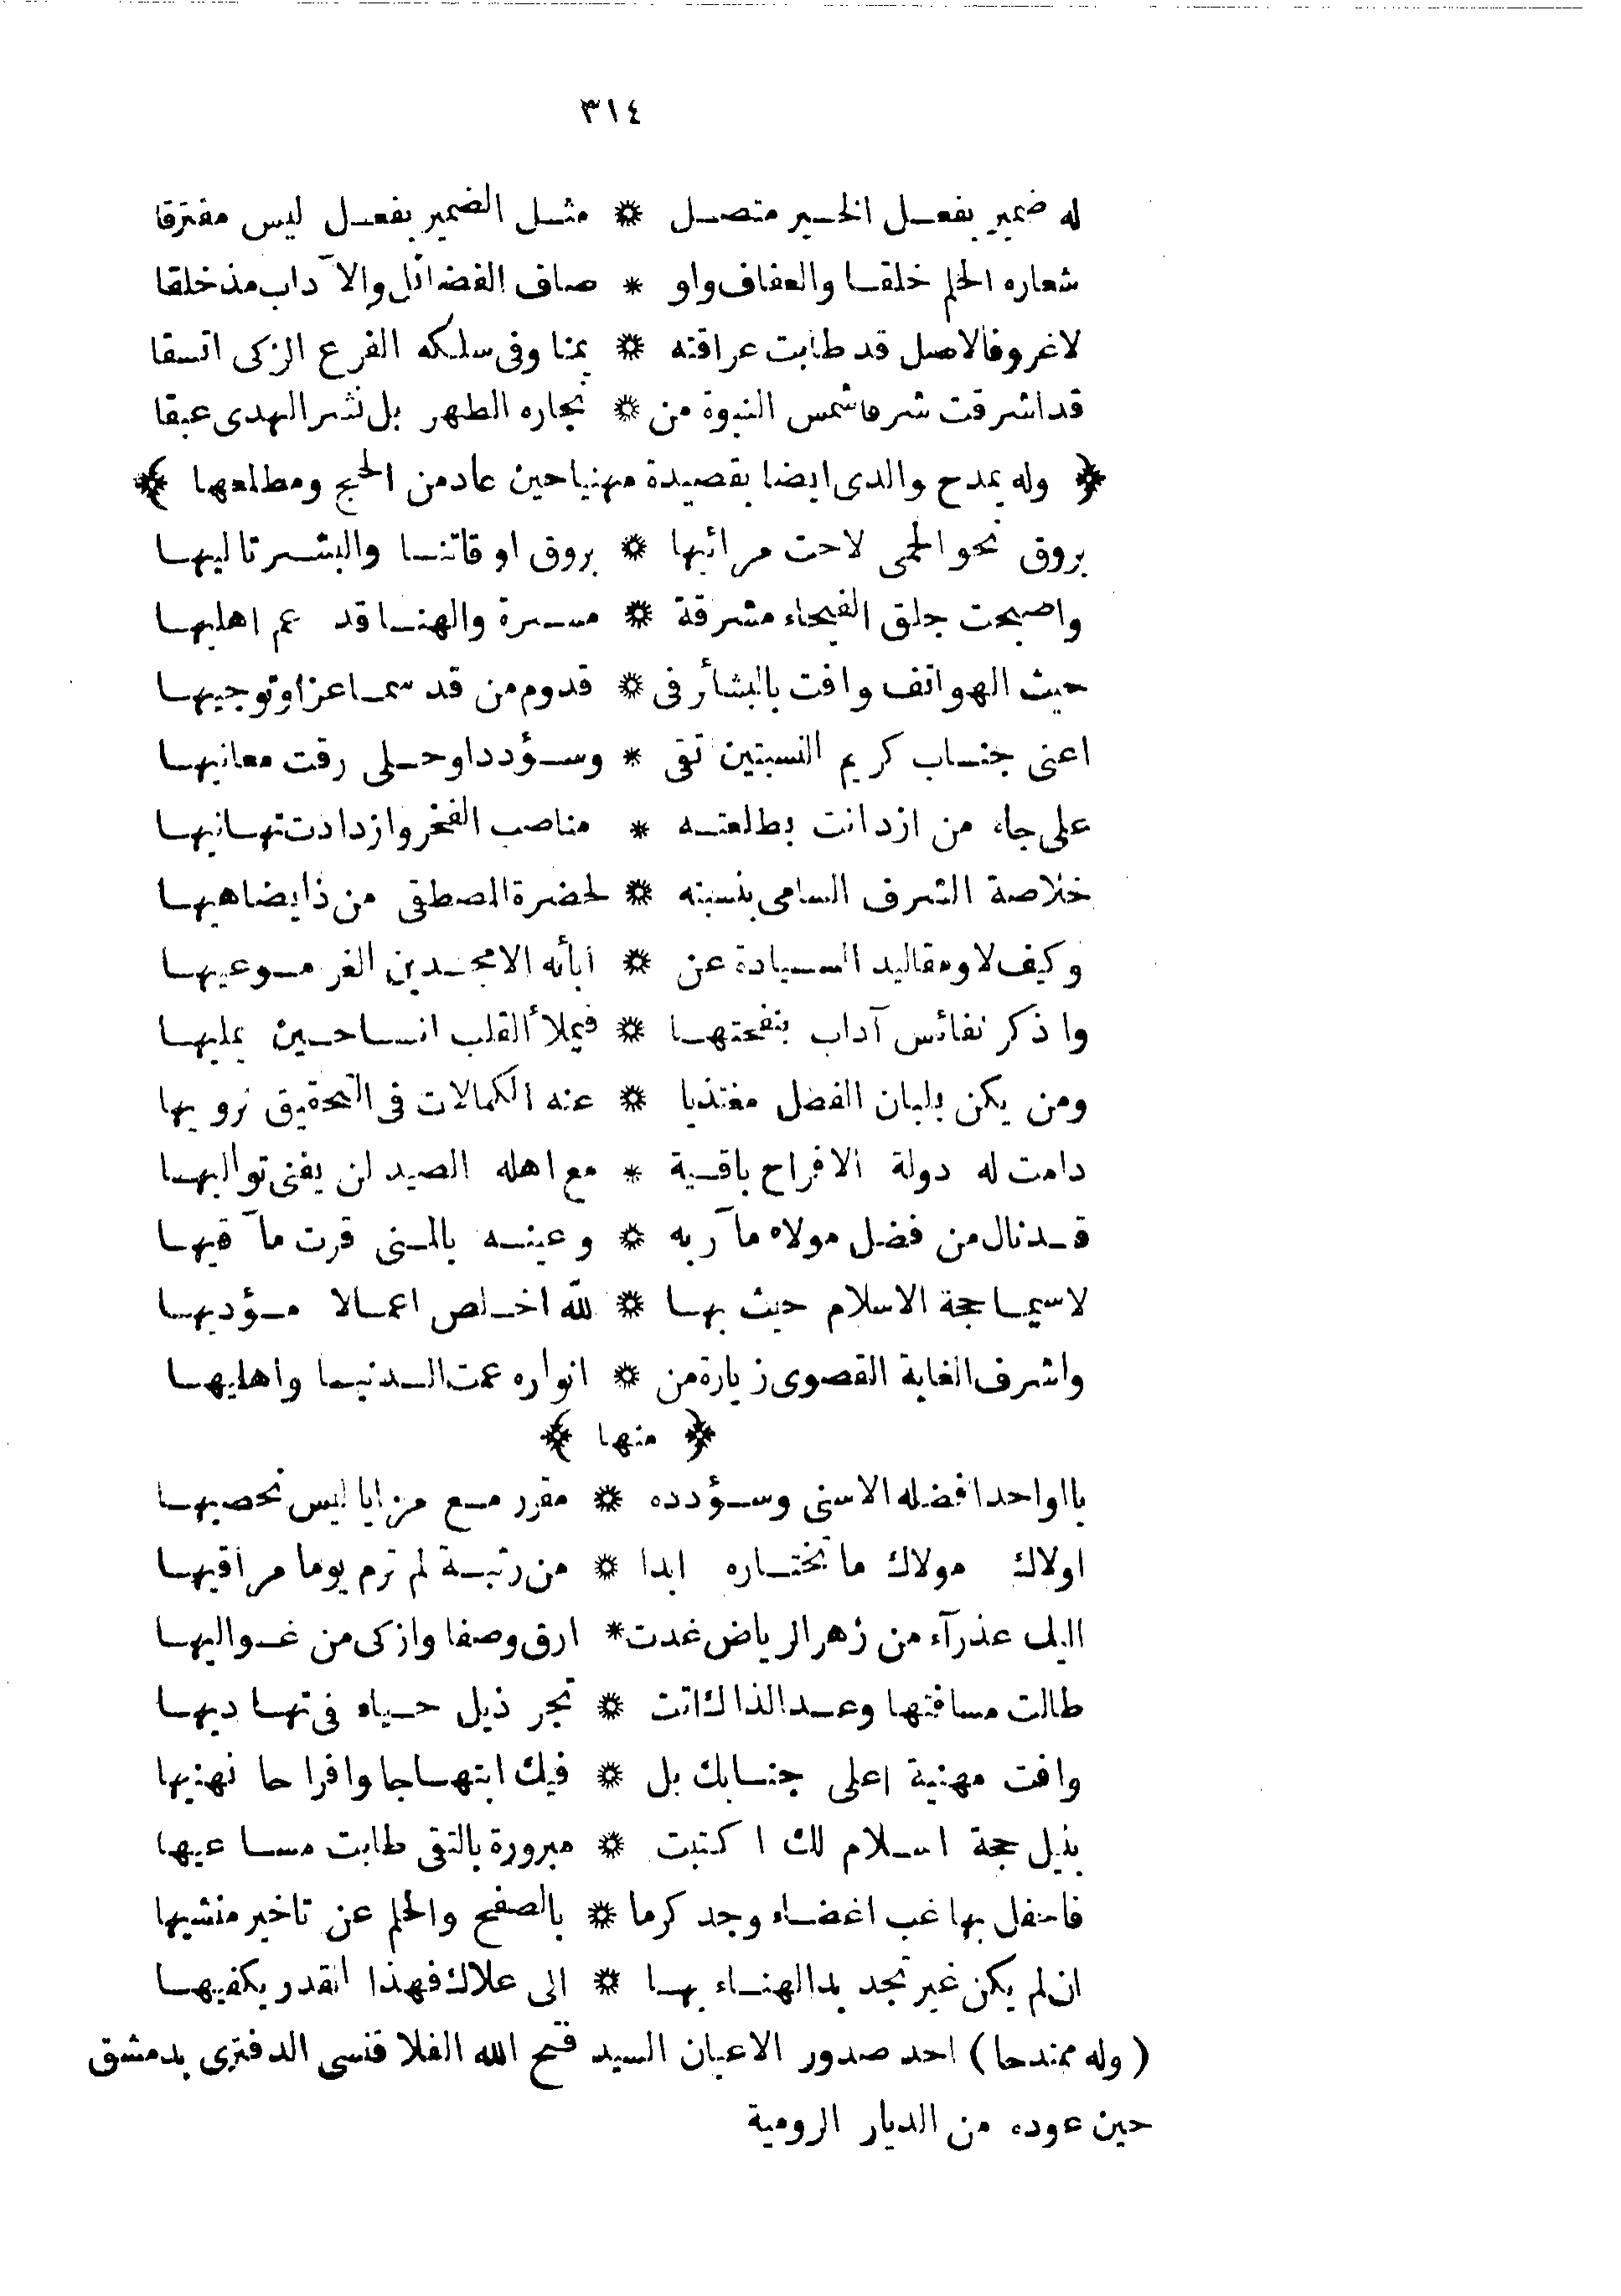 ٣١٤
له ضمير بفعل الخير متصل * مثل الضمير بفعل ليس مفترقا
شعاره الحلم خلقا والعفاف واو * صاف الفضائل والآداب مذ خلقا
لا غرو فالاصل قد طابت عراقته * يمنا وفى سلكه الفرع الزكى اتسقا
قد اشرقت شرفا شمس النبوة من * نجاره الطهر بل نشر الهدى عبقا
﴿ وله يمدح والدى ايضا بقصيدة مهنيا حين عاد من الحج ومطلعها ﴾
بروق نحو الحمى لاحت مرائيها * بروق اوقاتنا والبشر تاليها
واصبحت جلق الفيحاء مشرقة * مسرة والهنا قد عم اهليها
حيث الهواتف وافت بالبشائر فى * قدوم من قد سما عزا وتوجيها
اعنى جناب كريم النسبتين تقى * وسؤددا وحلى رقت معانيها
على جاه من ازدانت بطلعته * مناصب الفخر وازدادت تهانيها
خلاصة الشرف السامى بنسبته * لحضرة المصطفى من ذا يضاهيها
وكيف لا ومقاليد السيادة عن * آبائه الامجدين الغر موعيها
واذكر نفائس آداب بنفحتها * فيملأ القلب انسا حين يمليها
ومن يكن بلبان الفضل مغتذيا * عنه الكمالات فى التحقيق نرويها
دامت له دولة الافراح باقية * مع اهله الصيد لن يفنى تواليها
قد نال من فضل مولاه مآربه * وعينه بالمنى قرت مآقيها
لا سيما حجة الاسلام حيث بها * لله اخلص اعمالا مؤديها
واشرف الغاية القصوى زيارة من * انواره عمت الدنيا واهليها
﴿ منها ﴾
يا اوحدا فضله الاسنى وسؤدده * مقرر مع مزايا ليس نحصيها
اولاك مولاك ما تختاره ابدا * من رتبة لم ترم يوما مراقيها
اليك عذرآء من زهر الرياض غدت * ارق وصفا وازكى من غواليها
طالت مسافتها وعدا لذاك اتت * تجر ذيل حياء فى تهاديها
وافت مهنية اعلى جنابك بل * فيك ابتهاجا وافراحا نهنيها
بنيل حجة اسلام لك اكتبت * مبرورة بالتقى طابت مساعيها
فاحفل بها غب اغضاء وجد كرما * بالصفح والحلم عن تاخير منشيها
ان لم يكن غير تجديد الهناء بها * الى علاك فهذا القدر يكفيها
(وله ممتدحا) احد صدور الاعيان السيد فتح الله الفلاقنسى الدفترى بدمشق
حين عوده من الديار الرومية